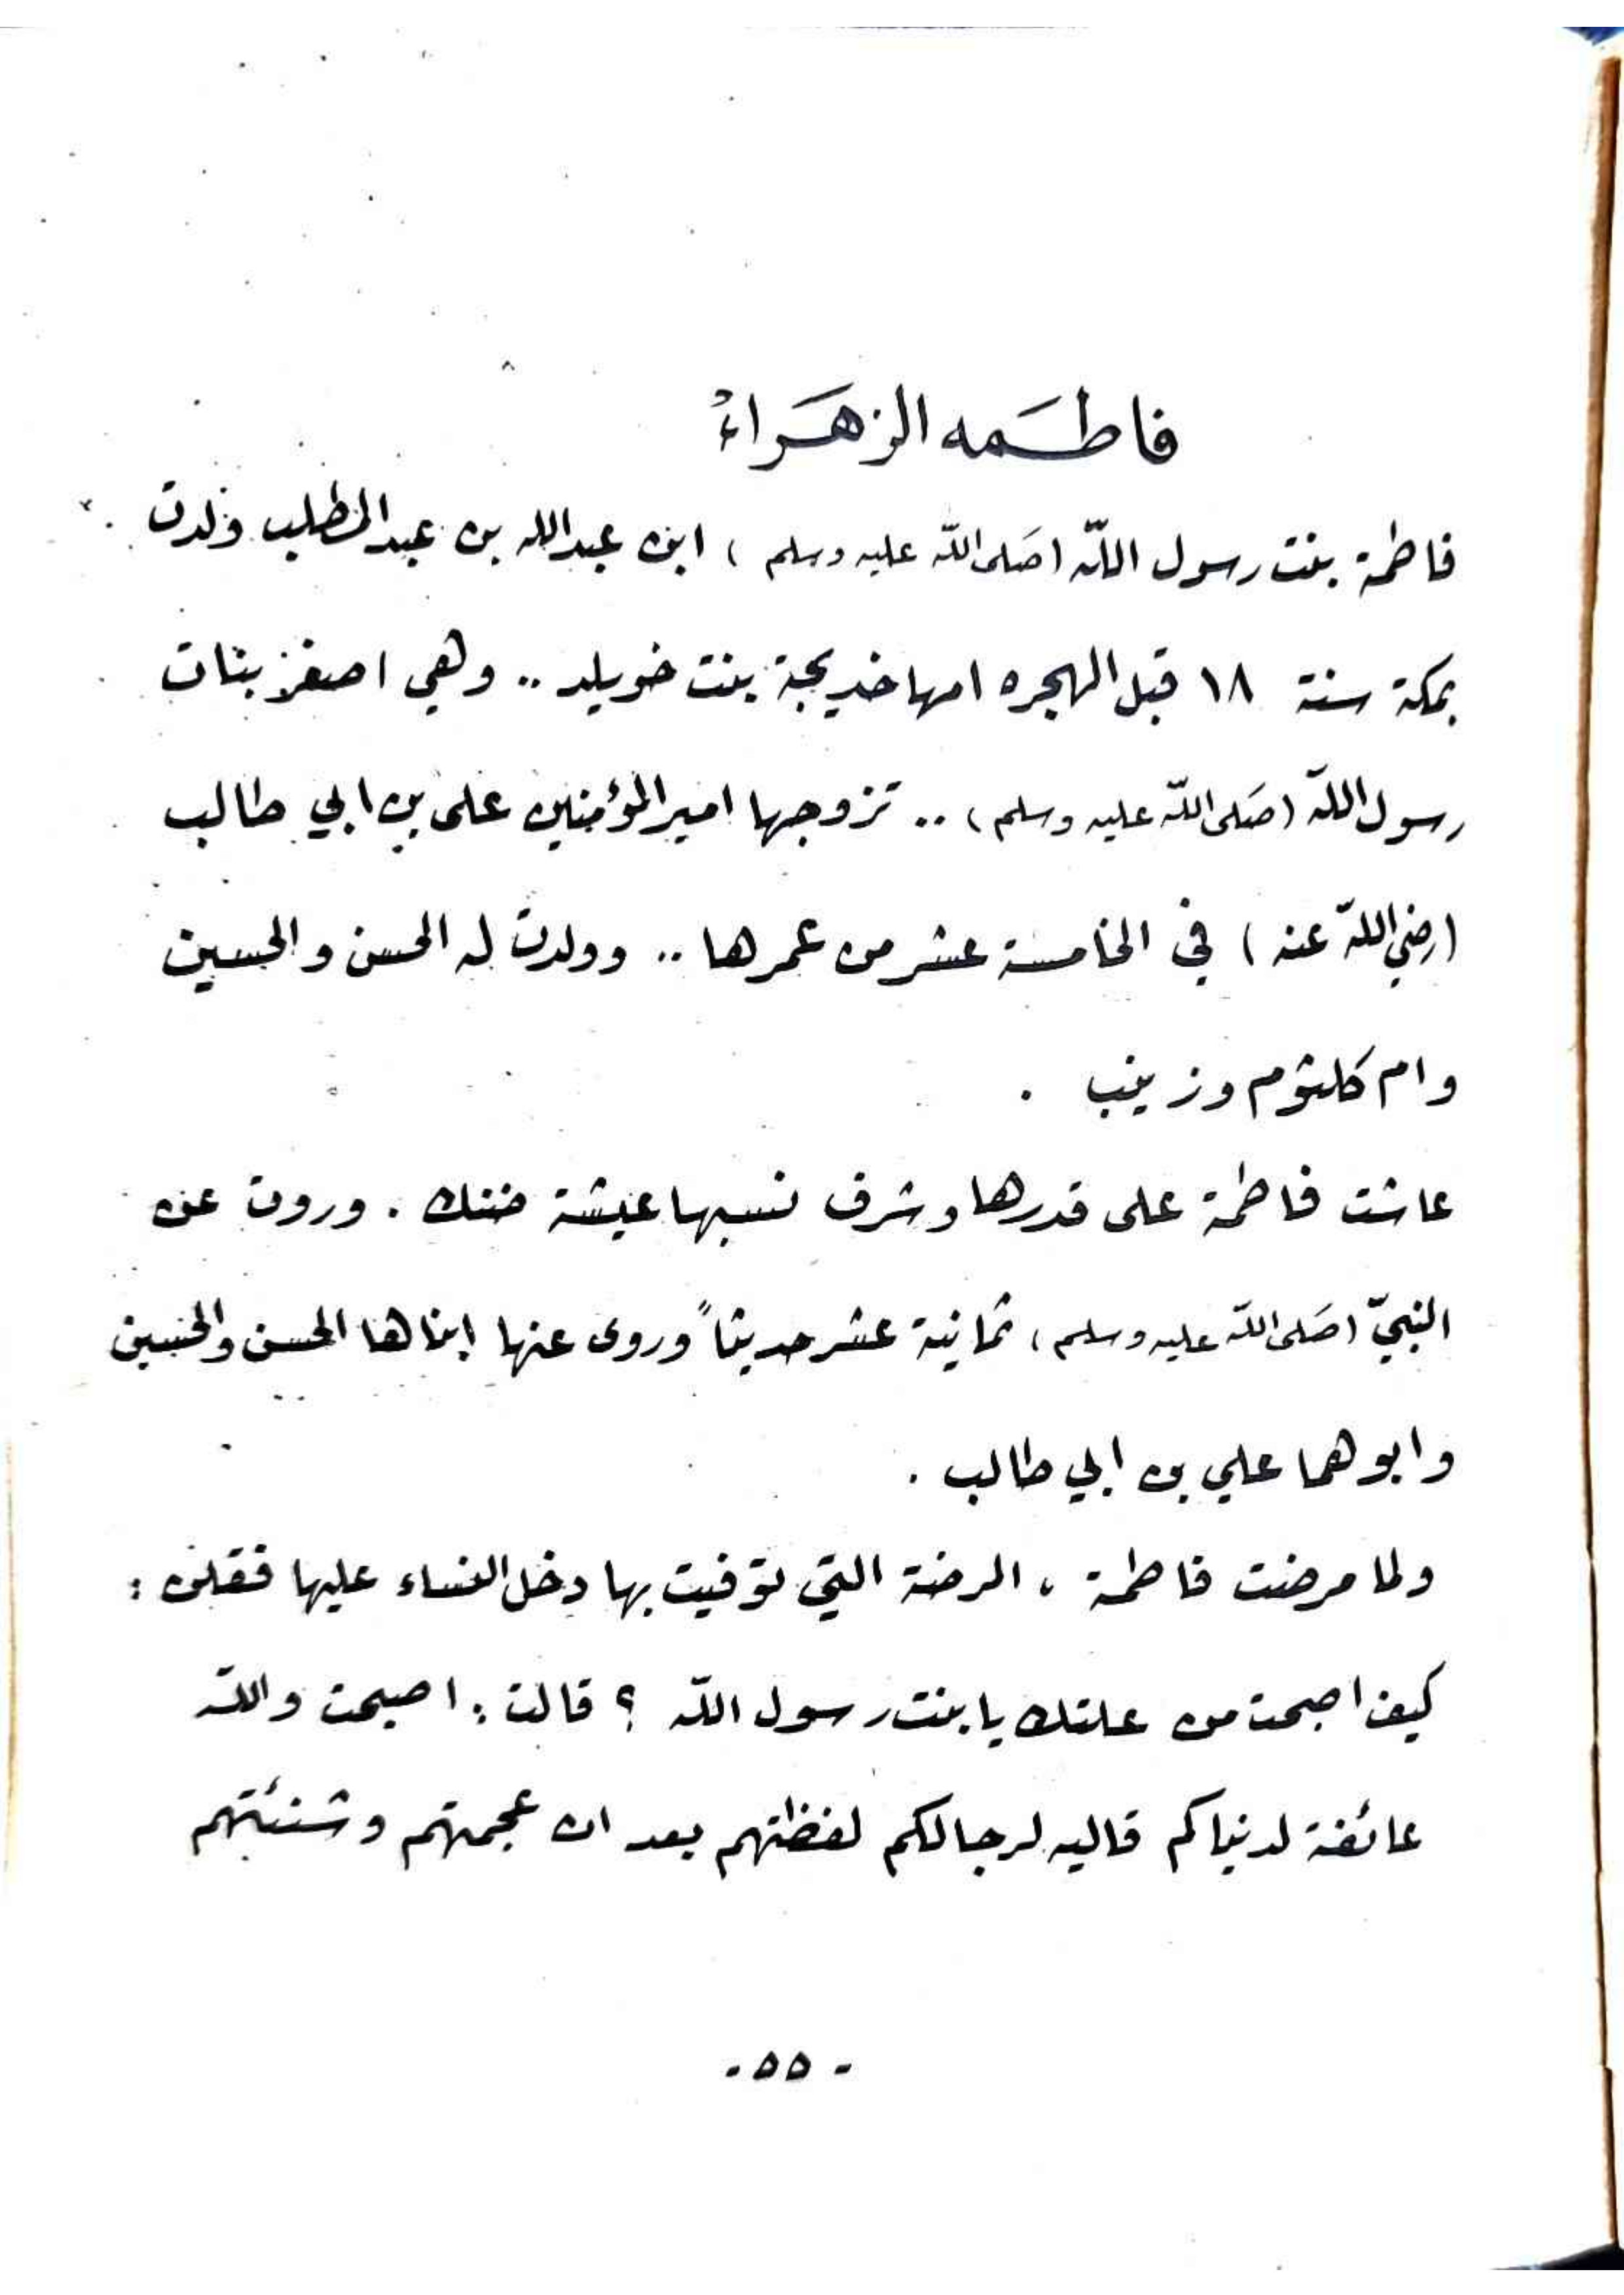 فاطمه الزهراء
فاطمة بنت رسول اللّه (صلى اللّه عليه وسلم) ابن عبدالله بن عبدالمطلب ولدت
بمكة سنة ١٨ قبل الهجره امها خديجة بنت خويلد .. وهي اصغر بنات
رسول اللّه (صلى اللّه عليه وسلم) .. تزوجها امير المؤمنين على بن ابي طالب
(رضي اللّه عنه) في الخامسة عشر من عمرها .. وولدت له الحسن والحسين
وام كلثوم وزينب .
عاشت فاطمة على قدرها وشرف نسبها عيشة ضنك . وروت عن
النبيّ (صلى اللّه عليه وسلم) ثمانية عشر حديثاً وروى عنها ابناها الحسن والحسين
وابوهما علي بن ابي طالب .
ولما مرضت فاطمة ، المرضة التي توفيت بها دخل النساء عليها فقلن :
كيف اصبحت من علتك يا بنت رسول اللّه ؟ قالت : اصبحت واللّه
عائفة لدنياكم قاليه لرجالكم لفظتهم بعد ان عجمتهم وشنئتهم
- ٥٥ -